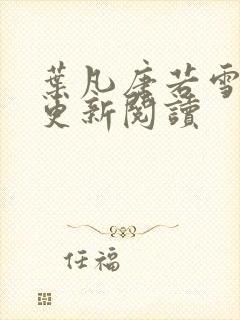 葉凡唐若雪
更新閱讀
任福